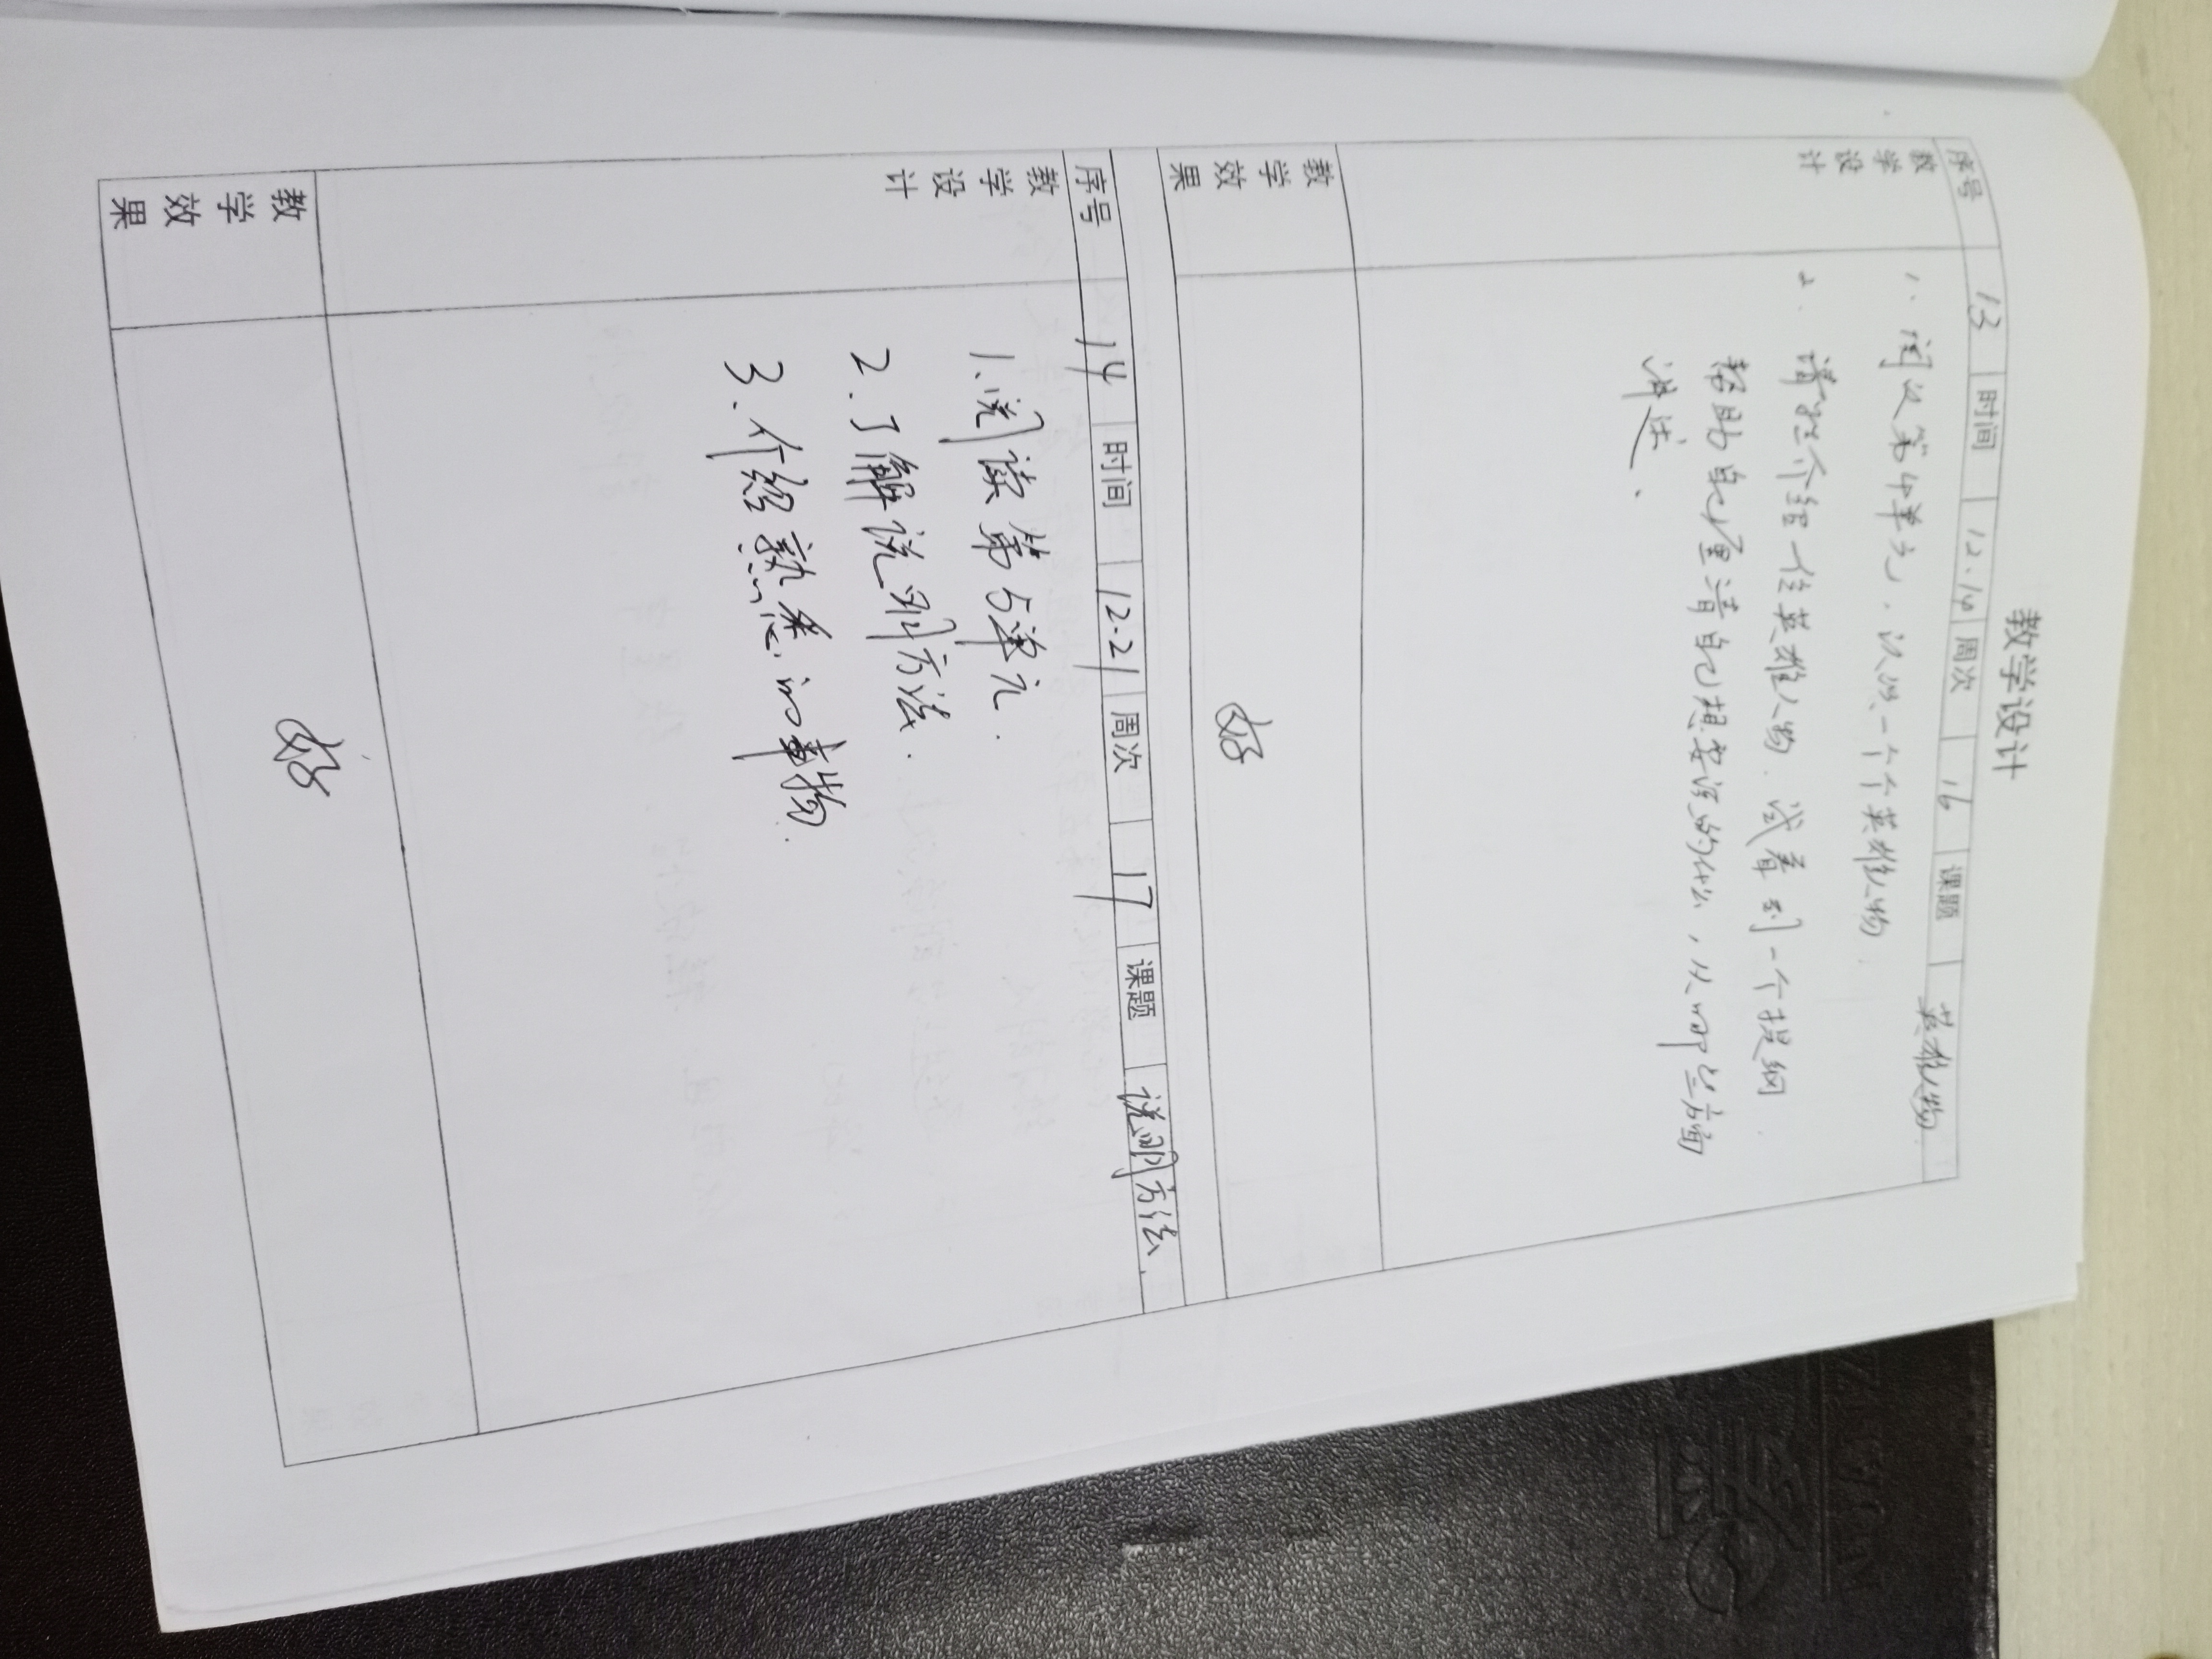 教学设计
序号 13 时间 12.14 周次 16 课题 英雄人物.
教学设计
1. 阅读第4单元，认识一个个英雄人物.
2. 请你介绍一位英雄人物. 试着列一个提纲
帮助自己厘清自己想要说的什么，从哪些方面
讲述.
教学效果
好
序号 14 时间 12.21 周次 17 课题 说明方法.
教学设计
1.阅读第5单元.
2.了解说明方法.
3.介绍熟悉的事物.
教学效果
好